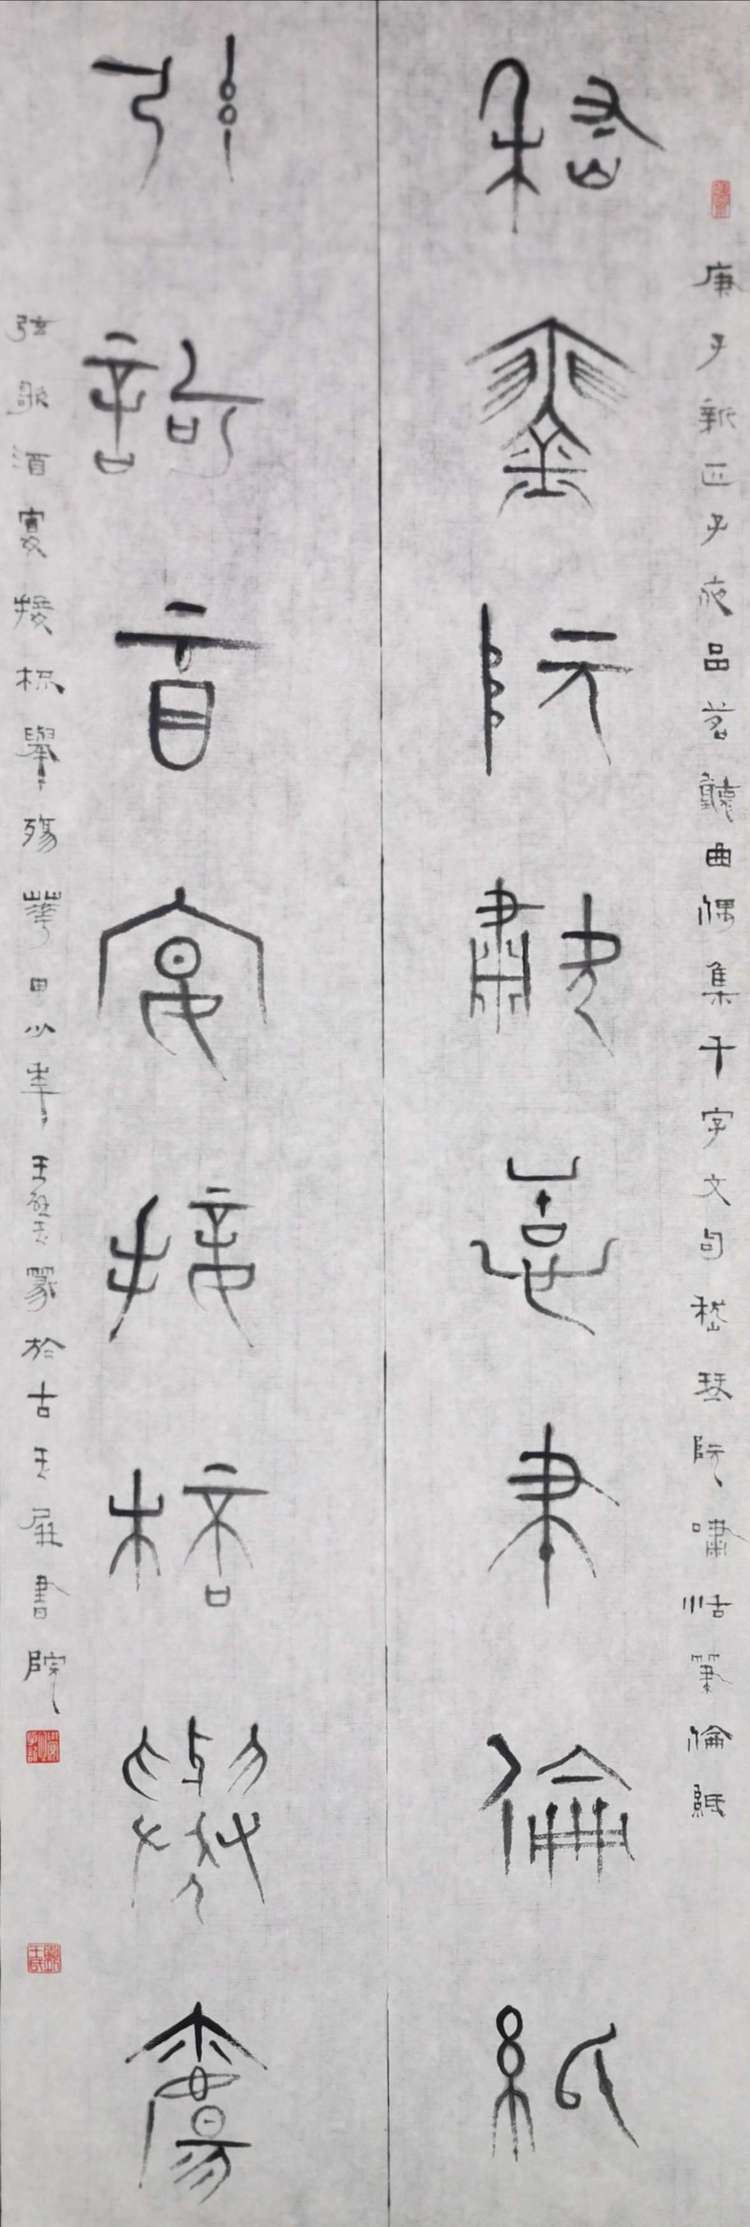 庚子新正子夜品茗聽曲偶集千字文句嵇琴阮嘯恬筆倫紙
嵇琴阮嘯恬筆倫紙
弦歌酒宴接杯舉觴
弦歌酒宴接杯舉殤篆於古玉屏書院